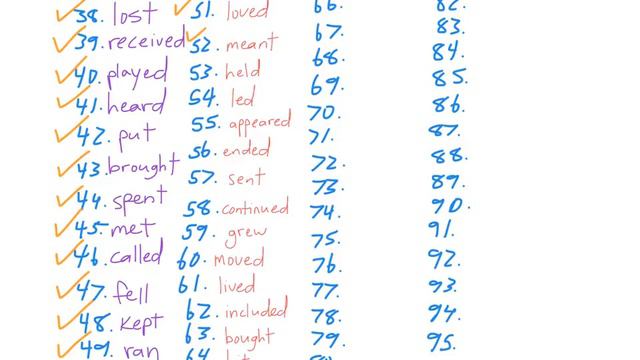 38. lost
39. received
40. played
41. heard
42. put
43. brought
44. spent
45. met
46. called
47. fell
48. kept
49. ran
51. loved
52. meant
53. held
54. led
55. appeared
56. ended
57. sent
58. continued
59. grew
60. moved
61. lived
62. included
63. bought
64.
66.
67.
68.
69.
70.
71.
72.
73.
74.
75.
76.
77.
78.
79.
82.
83.
84.
85.
86.
87.
88.
89.
90.
91.
92.
93.
94.
95.